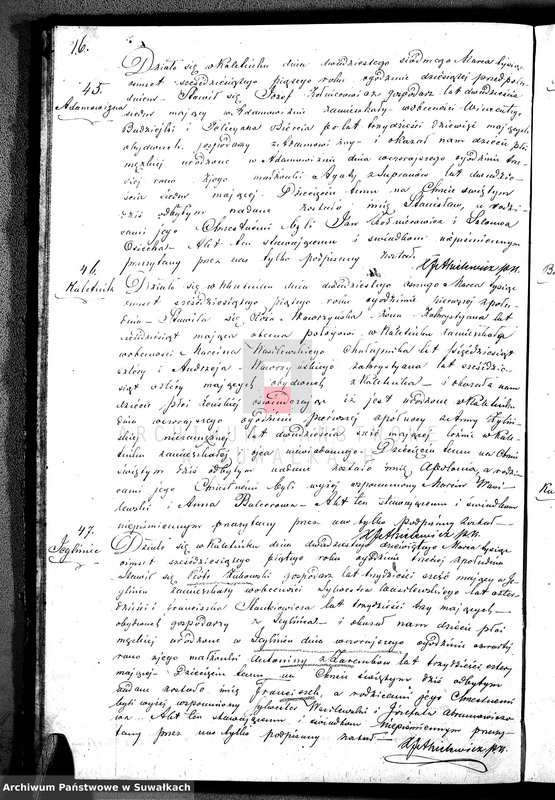 16.
45.
Adamowizna
Działo się w Kaletniku dnia dwudziestego siódmego Marca tysiąc
ośmset sześćdziesiątego piątego roku o godzinie dziesiątej przed połu-
dniem. Stawił się Józef Żołnierowicz gospodarz lat dwadzieścia
siedm mający w Adamowiznie zamieszkały w obecności Wincentego
i Felicyana lat trzydzieści dziewięć mających
obydwóch gospodarzy z Adamowizny i okazał nam dziecię płci
męzkiej urodzone w Adamowiznie dnia wczorajszego o godzinie trze-
ciej rano z jego małżonki Agaty z Supronów lat dwadzie-
ścia siedm mającej. Dziecięciu temu na Chrzcie świętym
dziś odbytym nadane zostało imię Stanisław, a rodzi-
cami jego Chrzestnemi byli Jan Żołnierowicz i Salomea
Akt ten stawającemu i świadkom niepiśmiennym
przeczytany przez nas tylko podpisany został.
46.
Kaletnik
Działo się w Kaletniku dnia dwudziestego ósmego Marca tysiąc
ośmset sześćdziesiątego piątego roku o godzinie pierwszej z połu-
dnia. Stawiła się Róża Waworzyńska żona Zakrystyana lat
mająca obecna położowi w Kaletniku zamieszkała
w obecności Marcina Wasilewskiego Chałupnika lat pięćdziesiąt
cztery i Andrzeja Zakrystyana lat sześćdzie-
siąt cztery mających obydwóch z Kaletnika i okazała nam
dziecię płci żeńskiej oświadczając iż jest urodzone w Kaletniku
dnia wczorajszego o godzinie pierwszej z północy z Anny
niezamężnej lat dwadzieścia sześć mającej także w Kale-
tniku zamieszkałej z ojca niewiadomego. Dziecięciu temu na Chrzcie
świętym dziś odbytym nadane zostało imię Apolonia, a rodzi-
cami jego Chrzestnemi byli wyżej wspomniony Marcin Wasi-
lewski i Anna Akt ten stawającemu i świadkom
niepiśmiennym przeczytany przez nas tylko podpisany został
47.
Jegliniec
Działo się w Kaletniku dnia dwudziestego dziewiątego Marca tysiąc
ośmset sześćdziesiątego piątego roku o godzinie trzeciej z południa
Stawił się Piotr Żukowski gospodarz lat trzydzieści sześć mający w Je-
gliniu zamieszkały w obecności Sylwestra Wasilewskiego lat czter-
dzieści i Franciszka Stankiewicza lat trzydzieści trzy mających
obydwóch gospodarzy z Jeglińca i okazał nam dziecię płci
męzkiej urodzone w Jegliniu dnia wczorajszego o godzinie czwartej
rano z jego małżonki Antoniny z lat trzydzieści cztery
mającej. Dziecięciu temu na Chrzcie świętym dziś odbytym
nadane zostało imię Franciszek, a rodzicami jego Chrzestnemi
byli wyżej wspomniony Sylwester Wasilewski i Józefata Abramowiczo-
wa. Akt ten stawającemu i świadkom niepiśmiennym przeczy-
tany przez nas tylko podpisany został
ARCHIWUM PAŃSTWOWE
W SUWAŁKACH
Archiwum Państwowe w Suwałkach